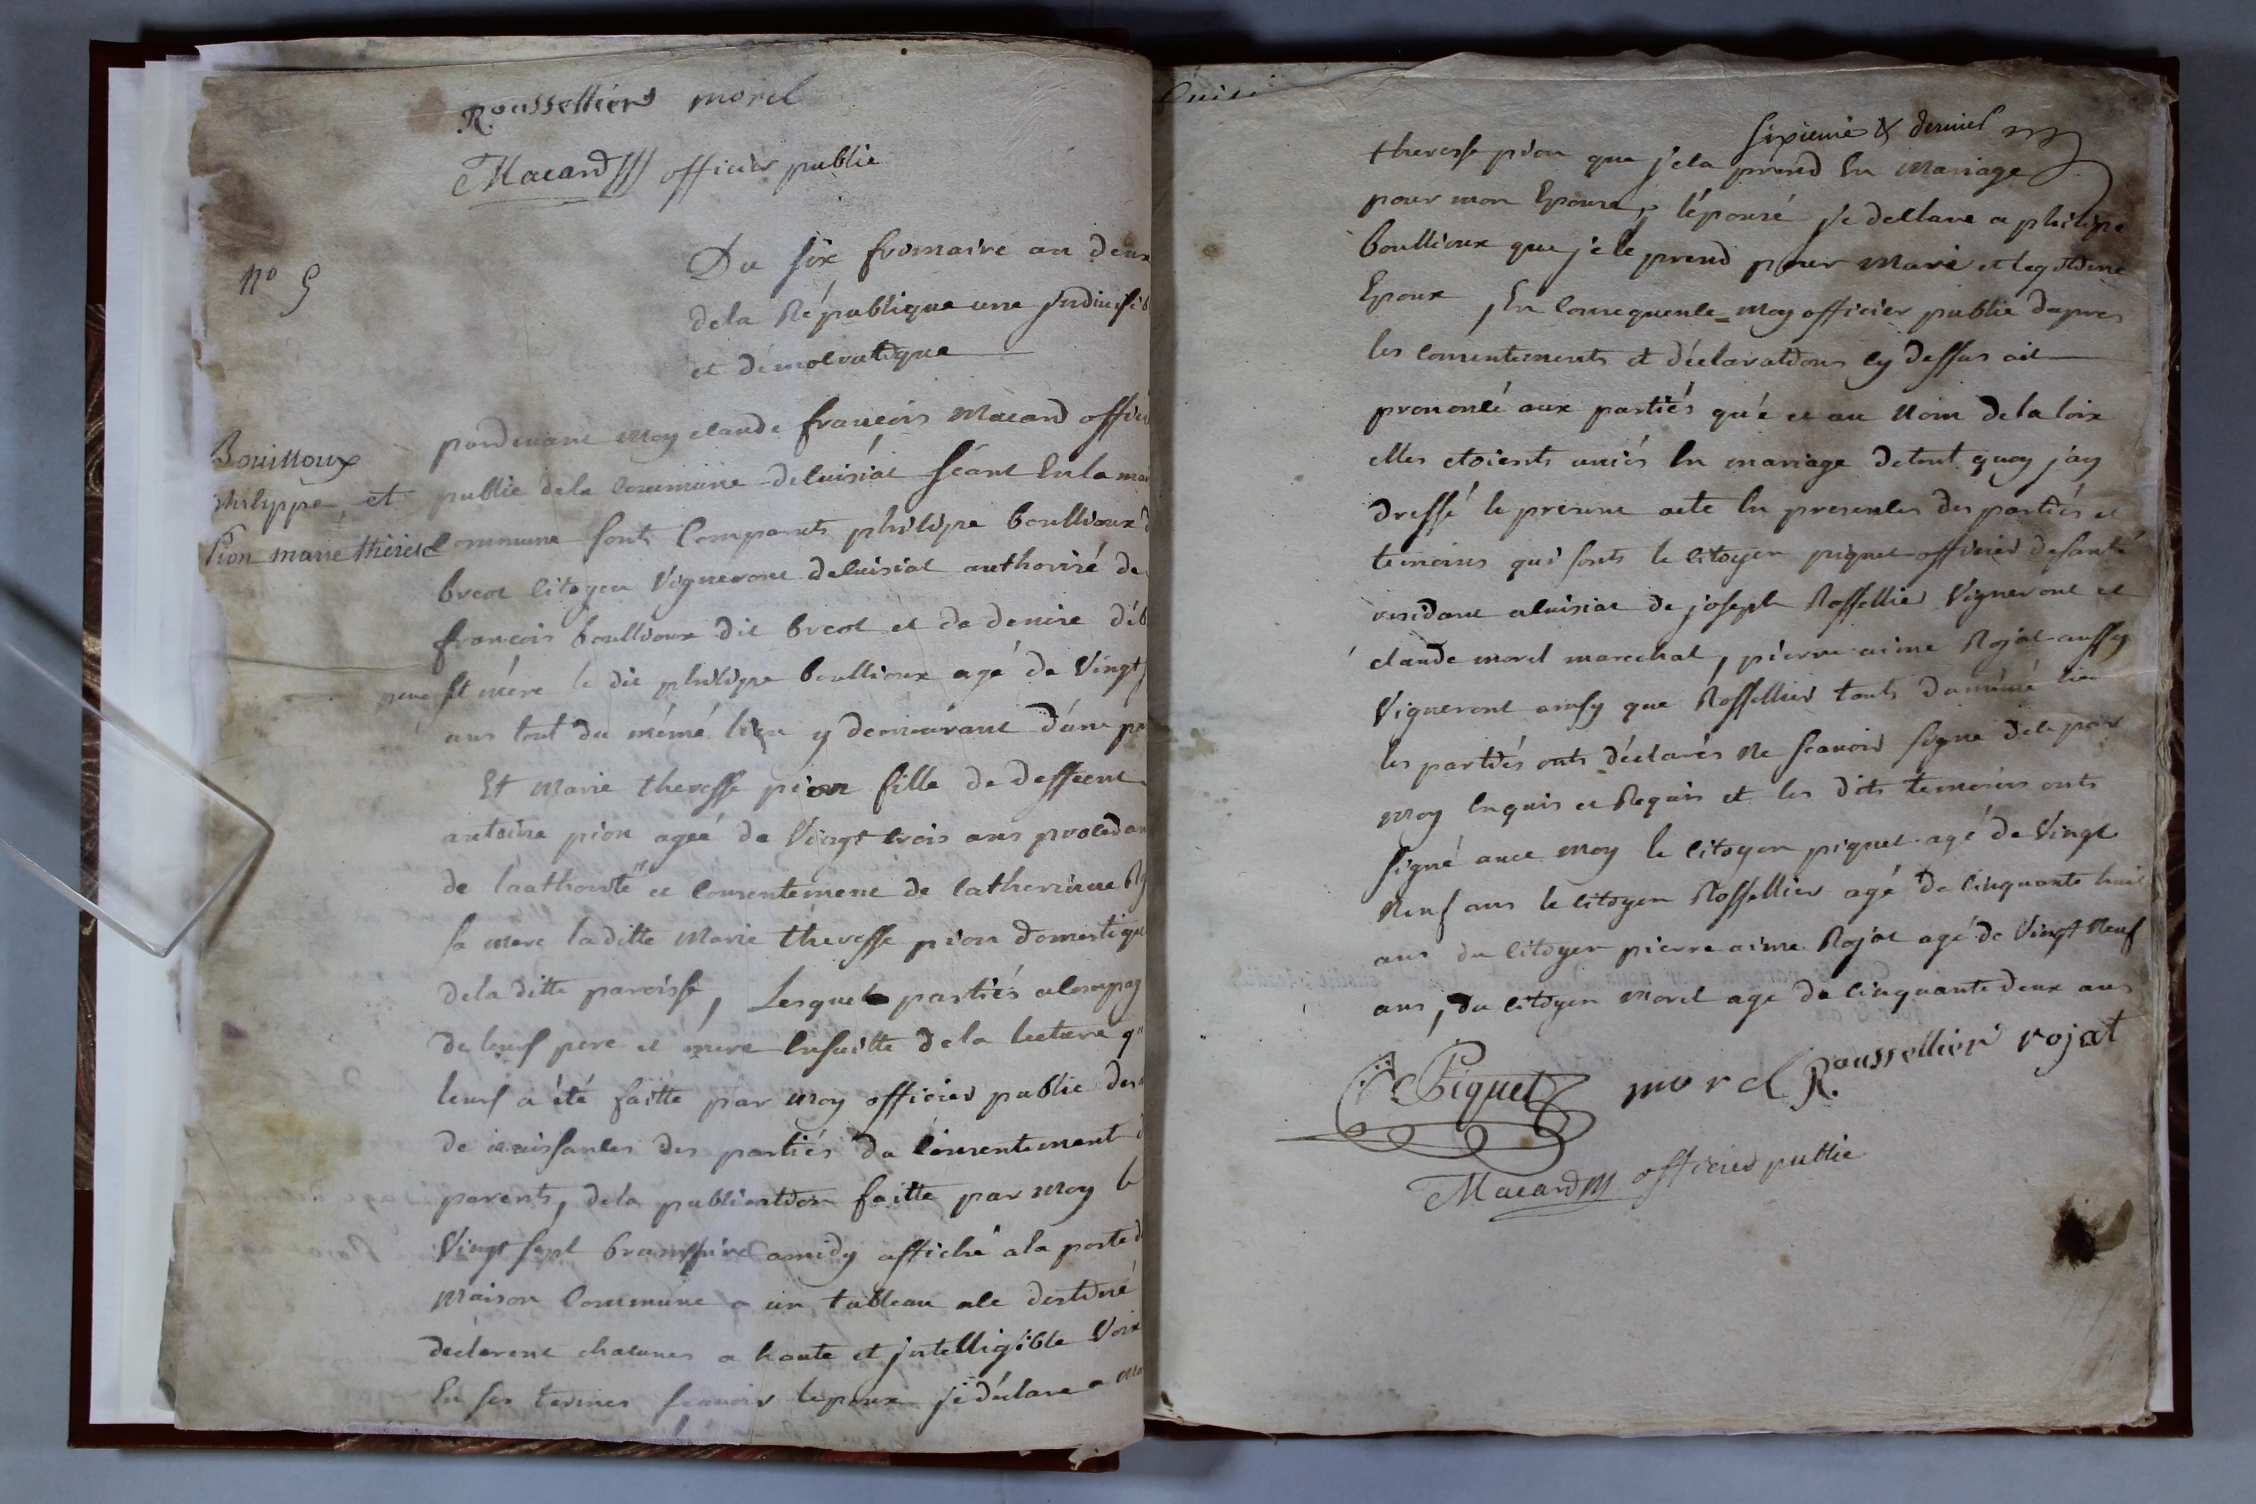 Roussellier morel
Macard officier public
n° 5
Du six frimaire an deux
dela République une jndivisib
et démocratique
Bouilloux
philippe et
Pion marie thérèse
pardevant moy claude françois Macard offici
public dela Commune deluisiat séant En la mai
Commune sont Comparuts philipe boullioux d
brcot citoyen Vigneront deluisiat authorisé de
françois boullioux dit brcot et de denise déb
pere et mère le dit philipe boullioux agé de Vingt
ans tout du mémé lieu y demeurant d'une pa
Et Marie theresse pion fille de deffeent
antoine pion ageé de Vingt trois ans procedan
de lauthorité et consentement de catherinne
sa mere laditte Marie theresse pion domestique
dela ditte paroisse, Lesquel partiés acompag
de leurs pere et mere Ensuitte dela lecture q
leurs a été faitte par moy officier public des
de naissances des partiés du consentement
parents, dela publication faitte par moy le
Vingt sept brumaire amidy affiché ala porte d
maison Commune a un tableau ale destiné
declarent chacunes a haute et jntelligible Voix
En ses termes scavoir lepoux je déclare a ma
sixieme & dernier
theresse pion que je la prend En Mariage
pour mon Epouse, l'épousé je declare a philipe
boullioux que je le prend pour Mari et legitime
Epoux, En Consequence moy officier public dapres
les consentements et déclarations cy dessus ait
prononcé aux partiés qu'é et au Nom dela loix
elles etoients uniés En mariage detout quoy jay
dressé le present acte En presences des partiés et
temoins qui sonts le citoyen piquet officier desanté
residant aluisiat de joseph Rossellier Vigneront et
claude morel marechal, pierre aime Rojat aussy
Vigneront ainsy que Rossellier touts du mémé lieu
les partiés onts déclarés Ne scavoir signe dele par
moy Enquis et Requis et les dits temoins onts
signé avec moy le citoyen piquet agé de Vingt
Neuf ans le citoyen Rossellier agé de Cinquante huit
ans du citoyen pierre aime Rojat agé de Vingt Neuf
ans, du citoyen morel age de cinquante deux ans
Piquet morel Roussellier rojat
Macard officier public